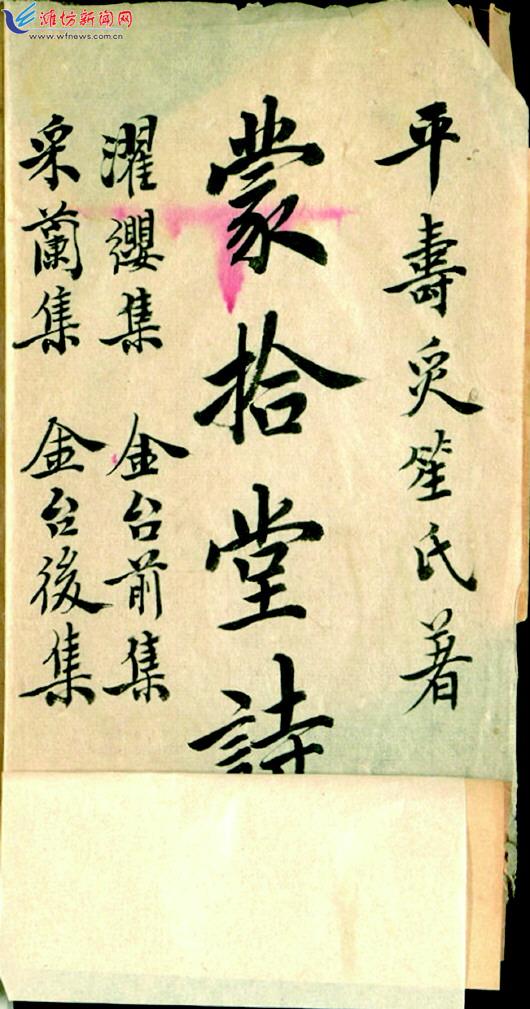 潍坊新闻网
www.wfnews.com.cn
平壽笙氏著
蒙拾堂詩
濯纓集 金台前集
采蘭集 金台後集